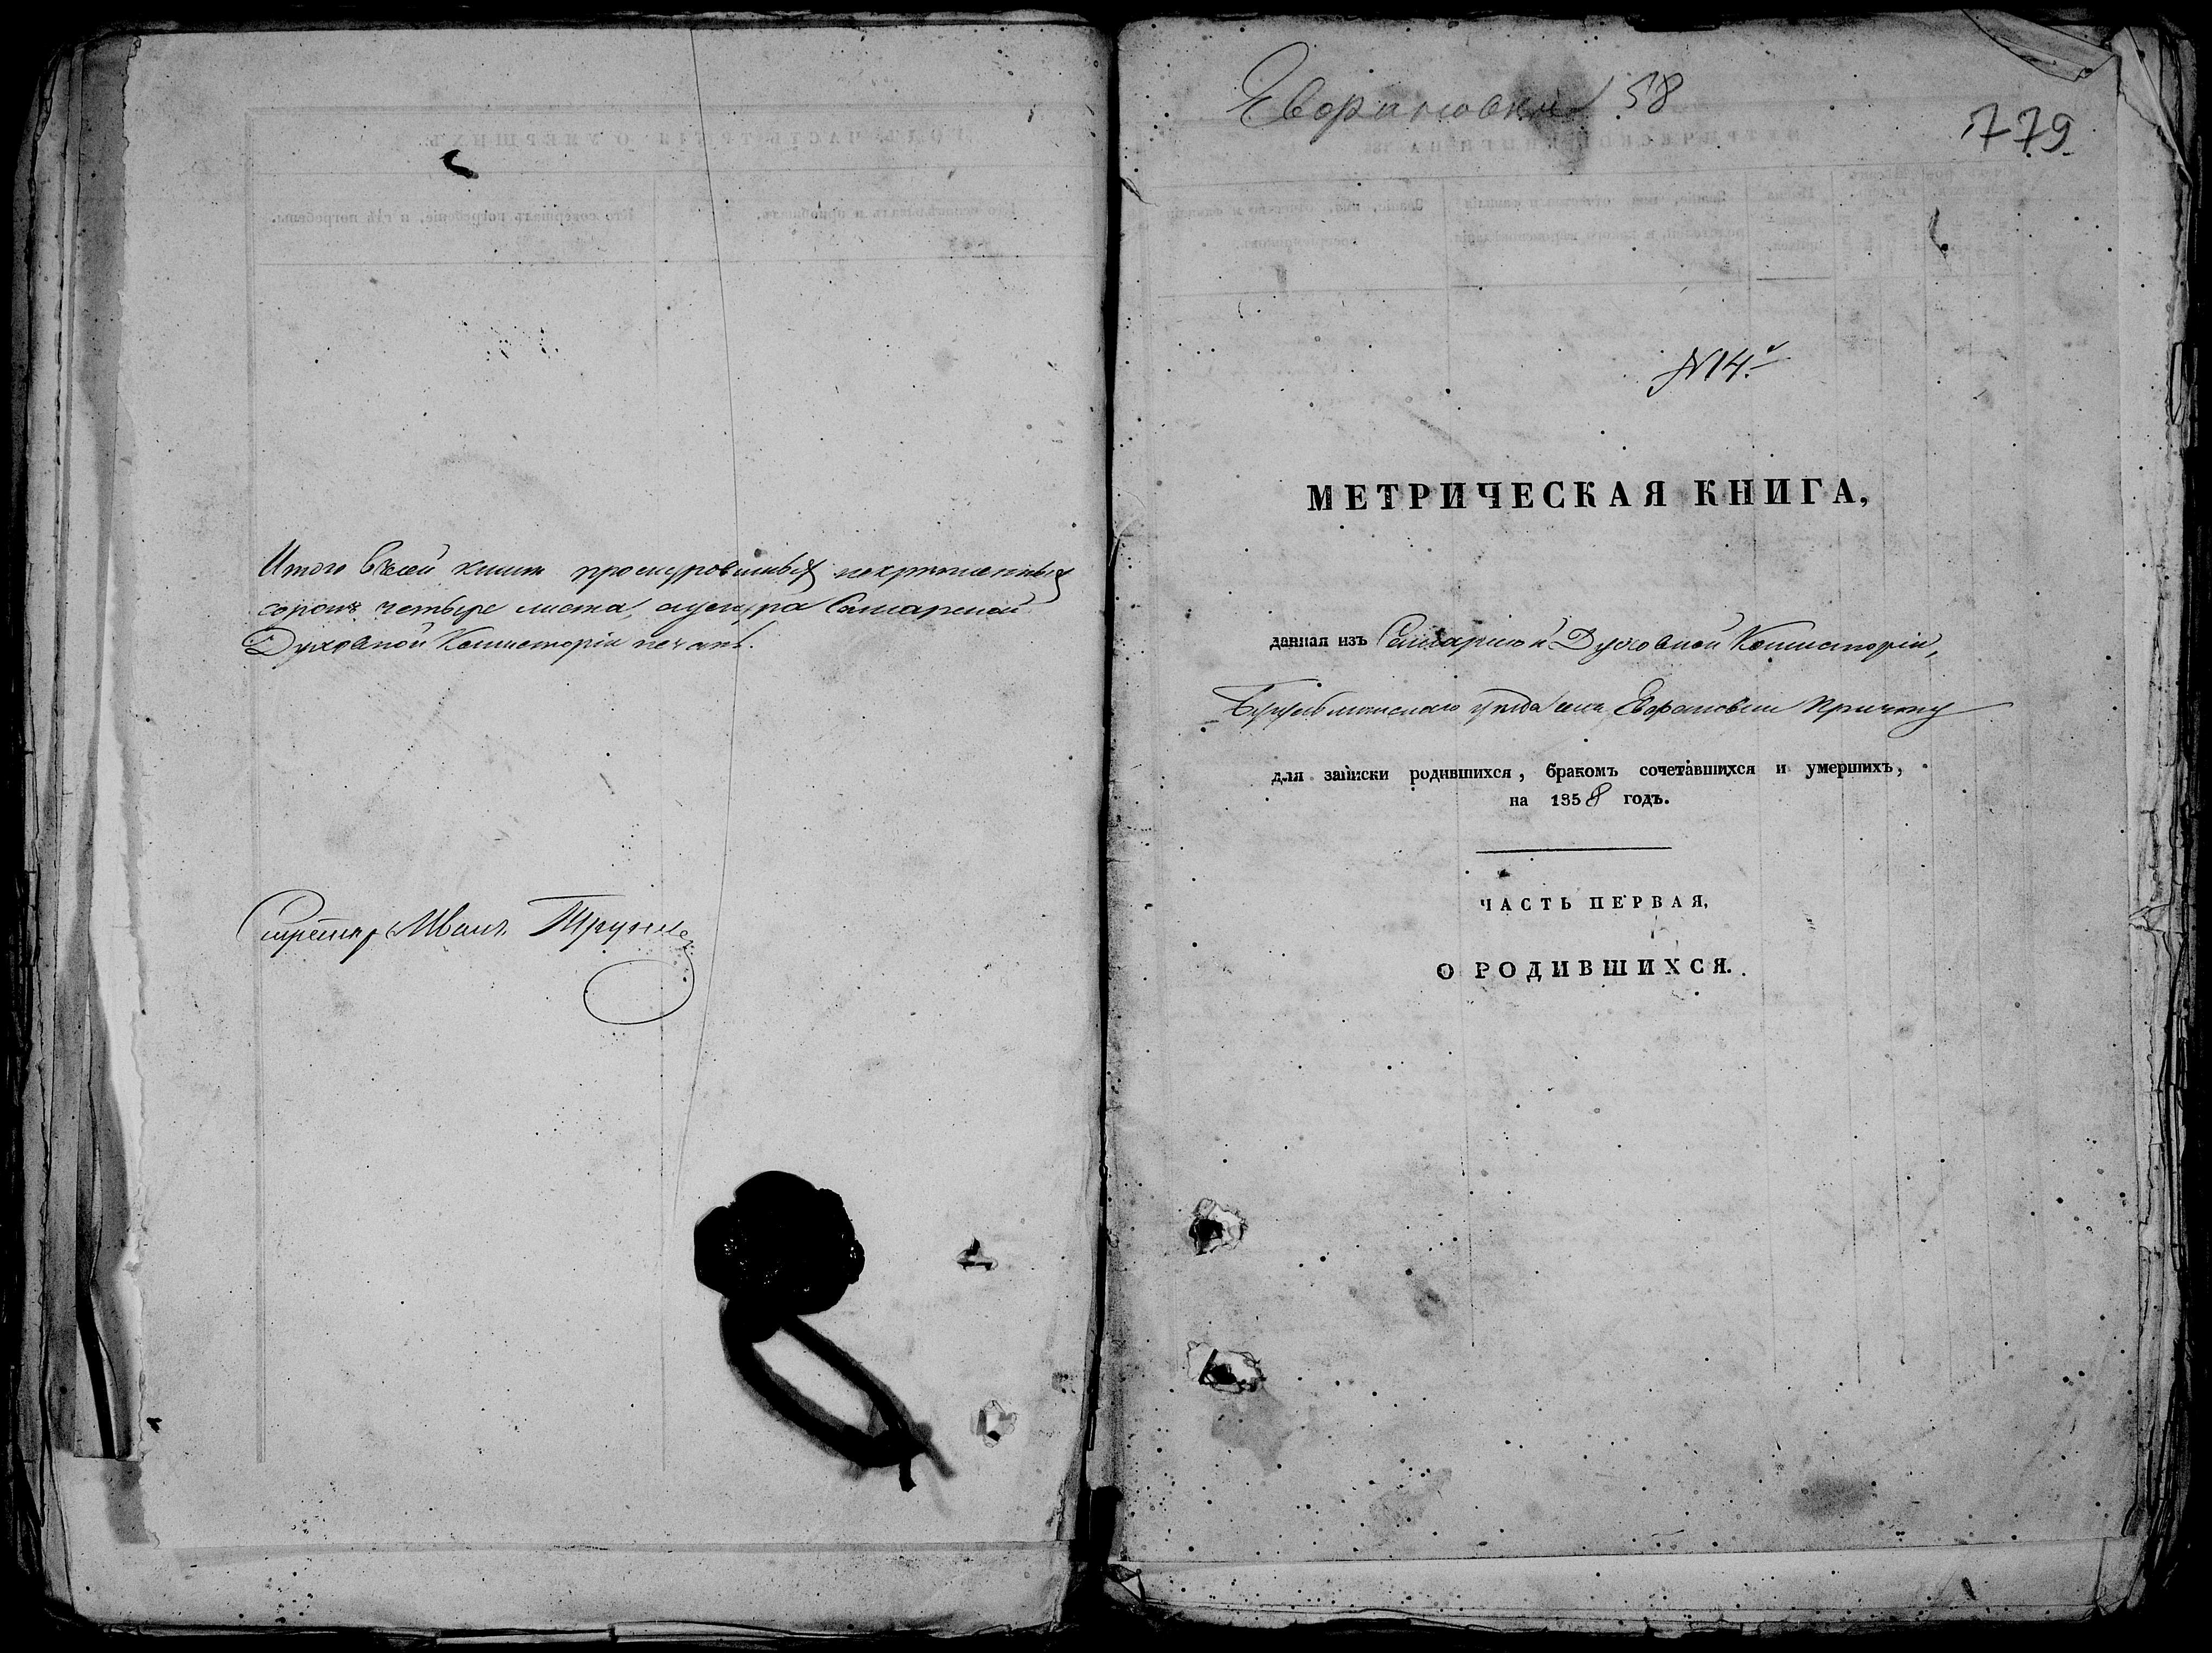 Итого всей книги прошнурованных нескрепленных
сорокъ четыре листа, Самарской
Духовной Консисторіи печать.
Секретарь Иванъ
58
779
№ 14.
МЕТРИЧЕСКАЯ КНИГА,
данная изъ Самарской Духовной Консисторіи,
Бугульминскаго уѣзда села Причту
для записки родившихся, бракомъ сочетавшихся и умершихъ,
на 1858 годъ.
ЧАСТЬ ПЕРВАЯ,
О РОДИВШИХСЯ.